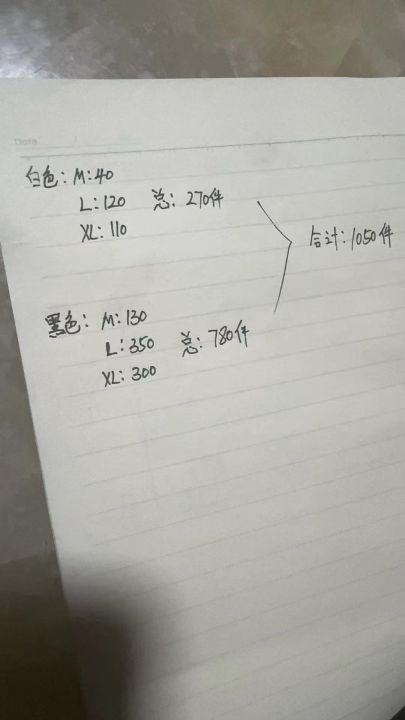 Date
白色: M:40
L:120 总: 270件
XL: 110
合计: 1050件
黑色: M: 130
L: 350 总: 780件
XL: 300